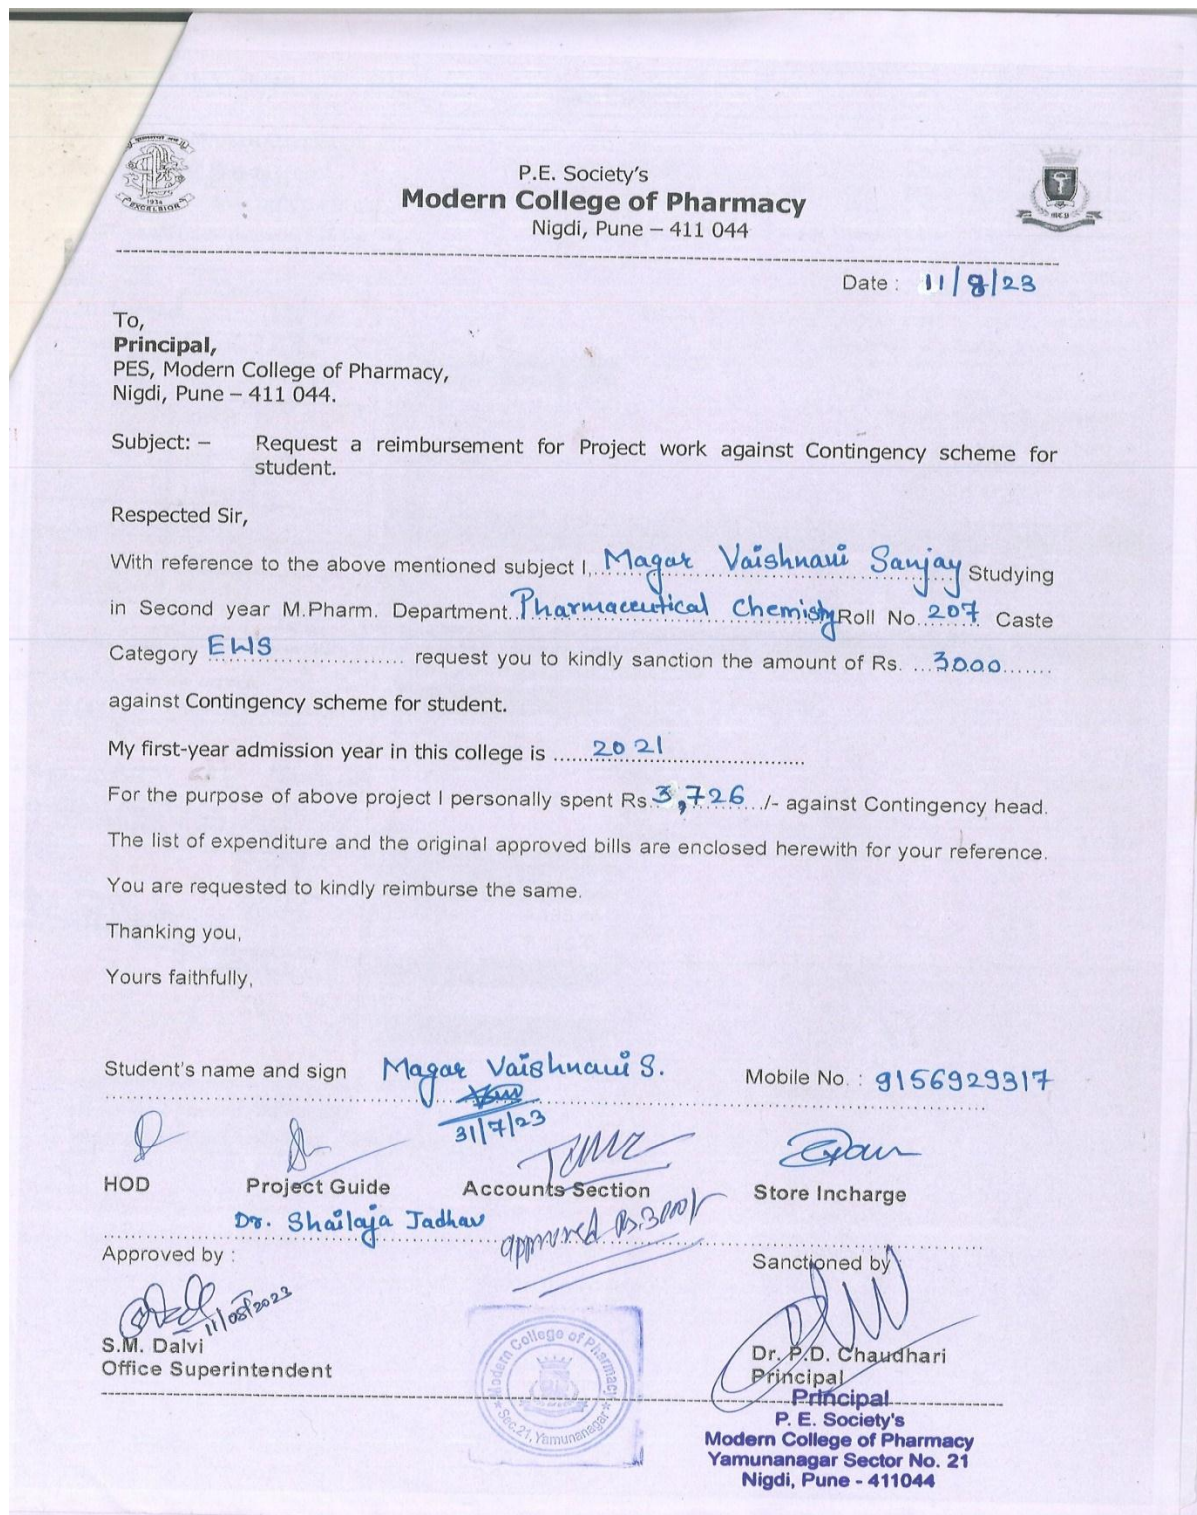 1934
EXCELSIOR
MCP
P.E. Society's
Modern College of Pharmacy
Nigdi, Pune – 411 044
Date : 11/8/23
To,
Principal,
PES, Modern College of Pharmacy,
Nigdi, Pune – 411 044.
Subject: – Request a reimbursement for Project work against Contingency scheme for
student.
Respected Sir,
With reference to the above mentioned subject I, Magar Vaishnavi Sanjay Studying
in Second year M.Pharm. Department Pharmaceutical Chemisty Roll No. 207 Caste
Category EWS request you to kindly sanction the amount of Rs. 3000
against Contingency scheme for student.
My first-year admission year in this college is 2021
For the purpose of above project I personally spent Rs. 3,726 /- against Contingency head.
The list of expenditure and the original approved bills are enclosed herewith for your reference.
You are requested to kindly reimburse the same.
Thanking you,
Yours faithfully,
Student's name and sign Magar Vaishnavi S. Mobile No. : 9156929317
31/7/23
HOD Project Guide Accounts Section Store Incharge
Dr. Shailaja Jadhav approved Rs.3000/-
Approved by : Sanctioned by
11/08/2023
S.M. Dalvi
Office Superintendent
Modern College of Pharmacy
Sec.21, Yamunanagar
Dr. P.D. Chaudhari
Principal
Principal
P. E. Society's
Modern College of Pharmacy
Yamunanagar Sector No. 21
Nigdi, Pune - 411044